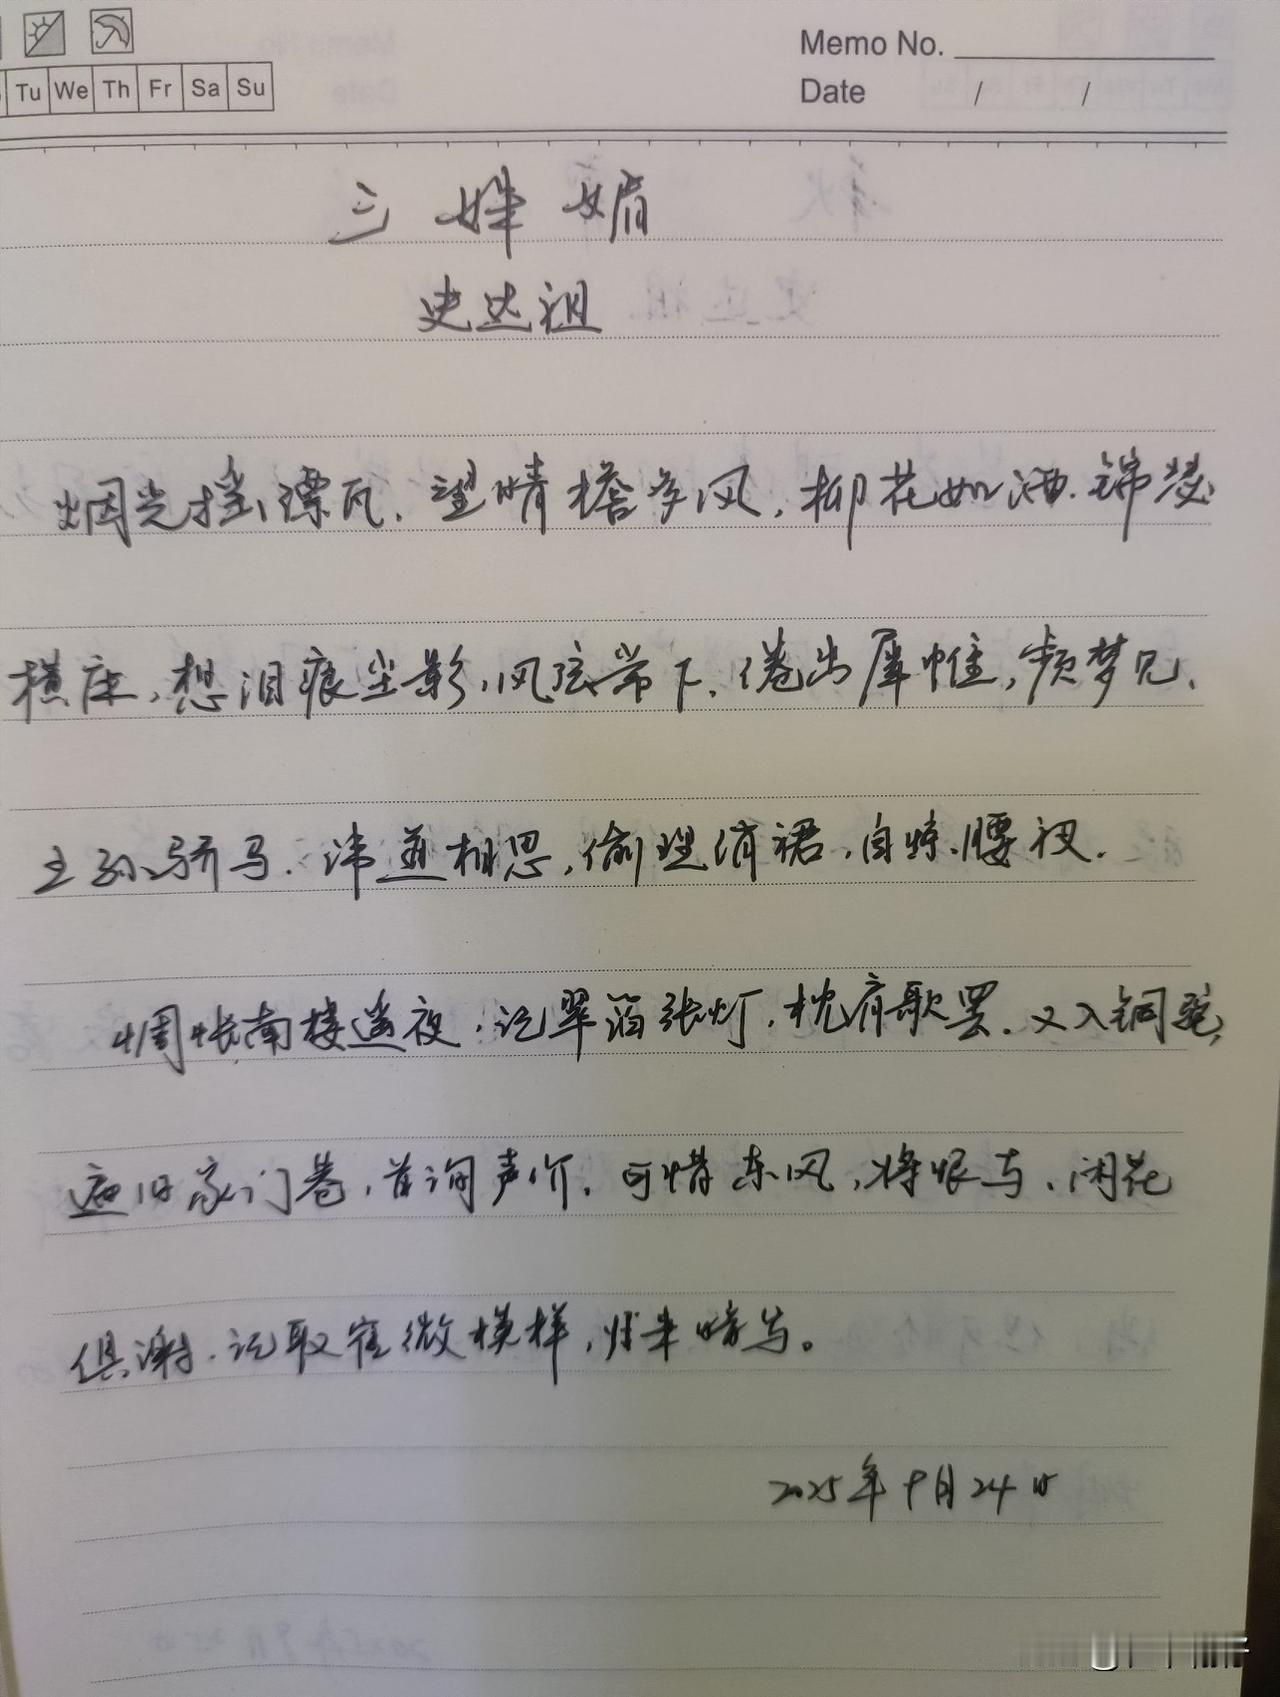 Tu We Th Fr Sa Su
Memo No.
Date / /
三姝媚
史达祖
烟光摇漂瓦,望晴檐多风,柳花如洒.锦瑟
横床,想泪痕尘影,风弦常下.倦出犀帷,频梦见、
王孙骄马.讳道相思,偷理绡裙,自惊腰衩.
惆怅南楼遥夜,记翠箔张灯,枕肩歌罢.又入铜驼,
遍旧家门巷,首询声价.可惜东风,将恨与、闲花
俱谢.记取崔徽模样,归来暗写。
2025年9月24日